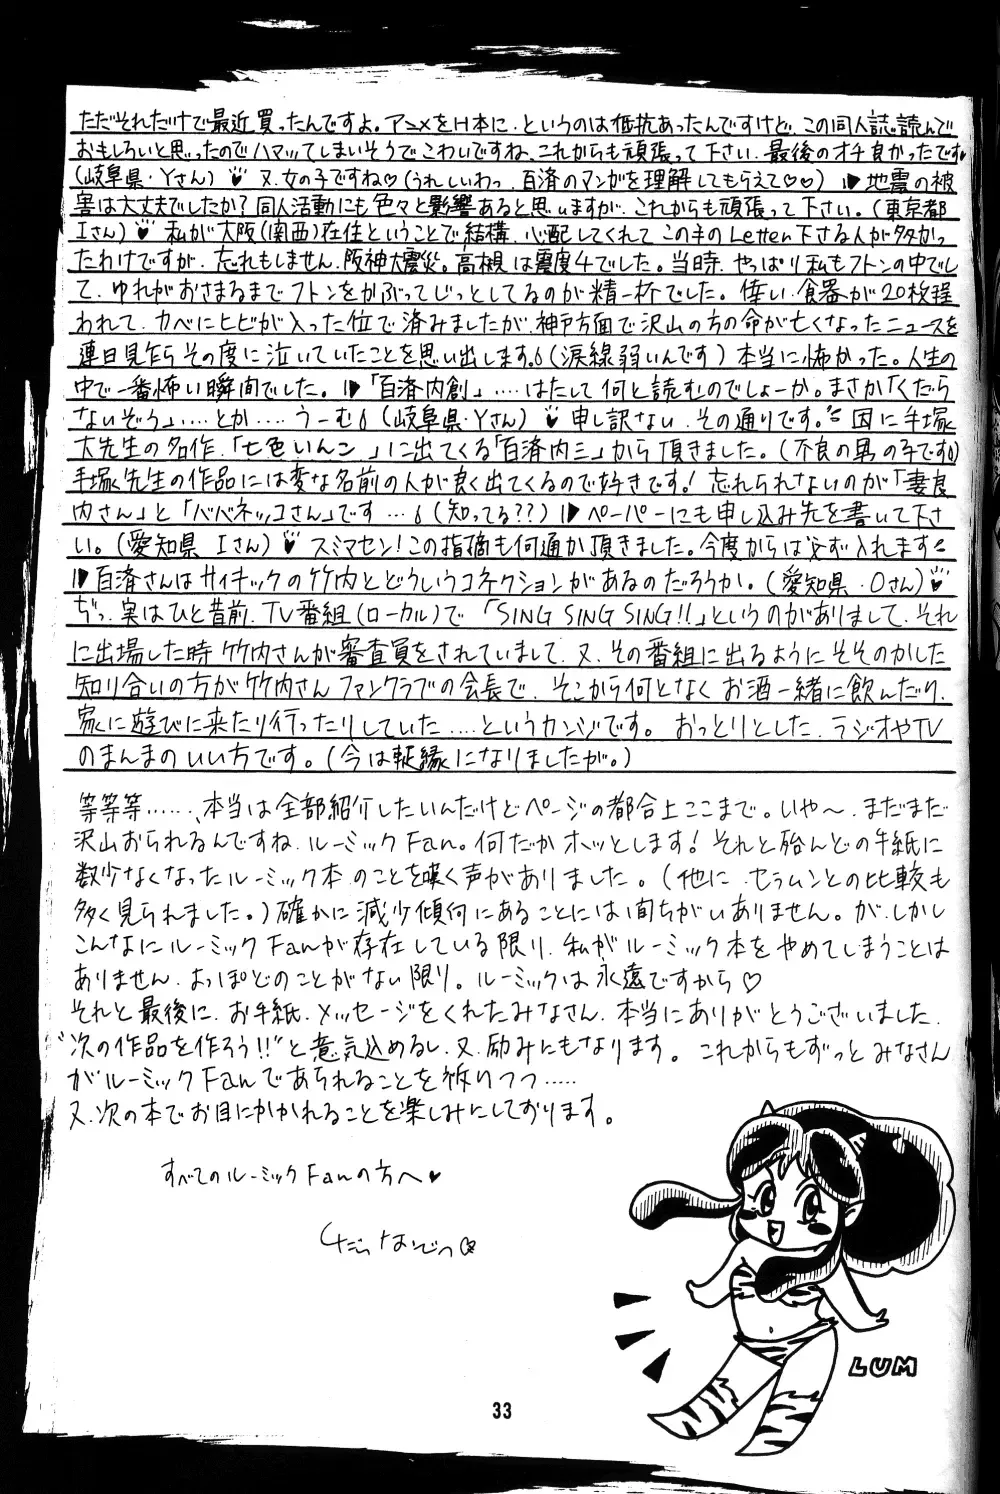 ただそれだけで最近買ったんですよ。アニメをH本に、というのは抵抗あったんですけど、この同人誌読んで
おもしろいと思ったのでハマッてしまいそうでこわいですね、これからも頑張って下さい。最後のオチ良かったです♥
(岐阜県・Yさん) 又、女の子ですね♡(うれしいわっ、百済のマンガを理解してもらえて♡♡) 地震の被
害は大丈夫でしたか?同人活動にも色々と影響あると思いますが、これからも頑張って下さい。(東京都
Iさん) 私が大阪(関西)在住ということで、結構、心配してくれて この手のLetter下さる人が多かっ
たわけですが、忘れもしません、阪神大震災。高槻は震度4でした。当時、やっぱり私もフトンの中でし
て、ゆれがおさまるまでフトンをかぶってじっとしてるのが精一杯でした。倖い、食器が20枚程
われて、カベにヒビが入った位で済みましたが、神戸方面で沢山の方の命が亡くなったニュースを
連日見たらその度に泣いていたことを思い出します。(涙線弱いんです)本当に怖かった。人生の
中で一番怖い瞬間でした。「百済内創」‥‥はたして何と読むのでしょーか。まさか「くだら
ないぞう」‥‥とか‥‥うーむ(岐阜県・Yさん) 申し訳ない、その通りです。因に手塚
大先生の名作、「七色いんこ」に出てくる「百済内三」から頂きました。(不良の男の子です)
手塚先生の作品には変な名前の人が良く出てくるので好きです!忘れられないのが「妻良
内さん」と「ババネッコさん」です…(知ってる??) ペーパーにも申し込み先を書いて下さ
い。(愛知県 Iさん) スミマセン!この指摘も何通か頂きました。今度からは必ず入れます
百済さんはサイキックの竹内とどういうコネクションがあるのだろうか。(愛知県・Oさん)
ぢっ、実はひと昔前、TV番組(ローカル)で「SING SING SING!!」というのがありまして、それ
に出場した時竹内さんが審査員をされていまして、又、その番組に出るようにそそのかした
知り合いの方が竹内さんファンクラブの会長で、そこから何となくお酒一緒に飲んだり、
家に遊びに来たり行ったりしていた‥‥というカンジです。おっとりとした、ラジオやTV
のまんまのいい方です。(今は疎縁になりましたが。)
等等等‥‥、本当は全部紹介したいんだけどページの都合上ここまで。いや〜、まだまだ
沢山おられるんですね、ルーミックFan。何だかホッとします!それと殆んどの手紙に
数少なくなったルーミック本のことを嘆く声がありました。(他に、セラムンとの比較も
多く見られました。)確かに減少傾向にあることには間ちがいありません。が、しかし
こんなにルーミックFanが存在している限り、私がルーミック本をやめてしまうことは
ありません、よっぽどのことがない限り。ルーミックは永遠ですから♡
それと最後に、お手紙、メッセージをくれたみなさん、本当にありがとうございました、
"次の作品を作ろう!!"と意気込めるし、又、励みにもなります。これからもずっとみなさん
がルーミックFanであられることを祈りつつ‥‥
又、次の本でお目にかかれることを楽しみにしております。
すべてのルーミックFanの方へ♥
くだらないぞう
LUM
33